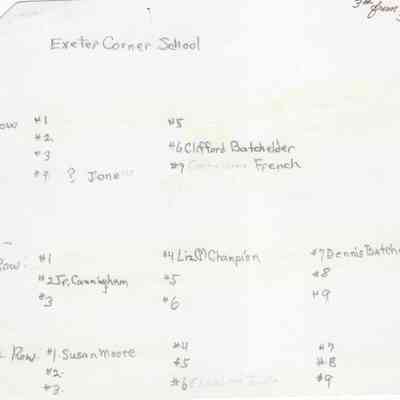 3rd from
Exeter Corner School
ow #1 #5
#2
#3 #6 Clifford Batchelder
#4 ? Jone #7 French
Row #1 #4 Liz(?) Champion #7 Dennis Batche
#2 Jr. Cunningham #5 #8
#3 #6 #9
Row #1. Susan Moore #4 #7
#2. #5 #8
#3. #6 #9